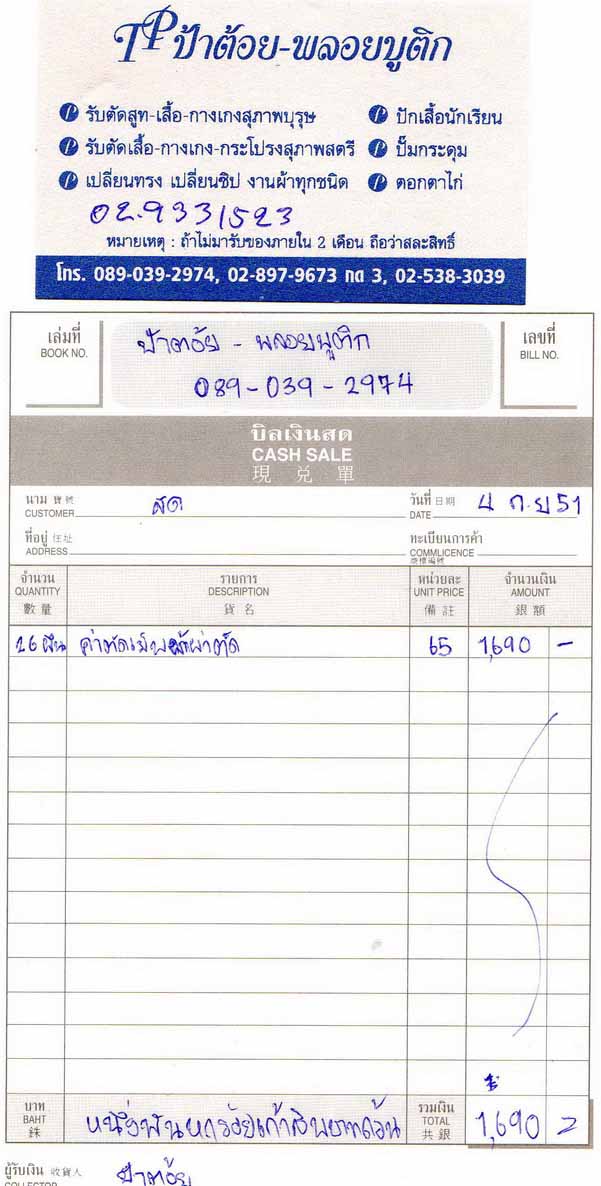 TP ป้าต้อย-พลอยบูติก
รับตัดสูท-เสื้อ-กางเกงสุภาพบุรุษ
ปักเสื้อนักเรียน
รับตัดเสื้อ-กางเกง-กระโปรงสุภาพสตรี
ปั๊มกระดุม
เปลี่ยนทรง เปลี่ยนซิป งานผ้าทุกชนิด
ตอกตาไก่
02-9331523
หมายเหตุ : ถ้าไม่มารับของภายใน 2 เดือน ถือว่าสละสิทธิ์
โทร. 089-039-2974, 02-897-9673 กด 3, 02-538-3039
เล่มที่
BOOK NO.
ป้าต้อย - พลอยบูติก
089-039-2974
เลขที่
BILL NO.
บิลเงินสด
CASH SALE
現兑單
นาม 寶號
CUSTOMER
สด
วันที่ 日期
DATE
4 ก.ย 51
ที่อยู่ 住址
ADDRESS
ทะเบียนการค้า
COMMLICENCE
商標編號
จำนวน
QUANTITY
數量
รายการ
DESCRIPTION
貨名
หน่วยละ
UNIT PRICE
備註
จำนวนเงิน
AMOUNT
銀額
26 ผืน ค่าตัดเย็บผ้าผ่าตัด 65 1,690 -
บาท
BAHT
銖
หนึ่งพันหกร้อยเก้าสิบบาทถ้วน
รวมเงิน
TOTAL
共銀
1,690
ผู้รับเงิน 收貨人
COLLECTOR
ป้าต้อย